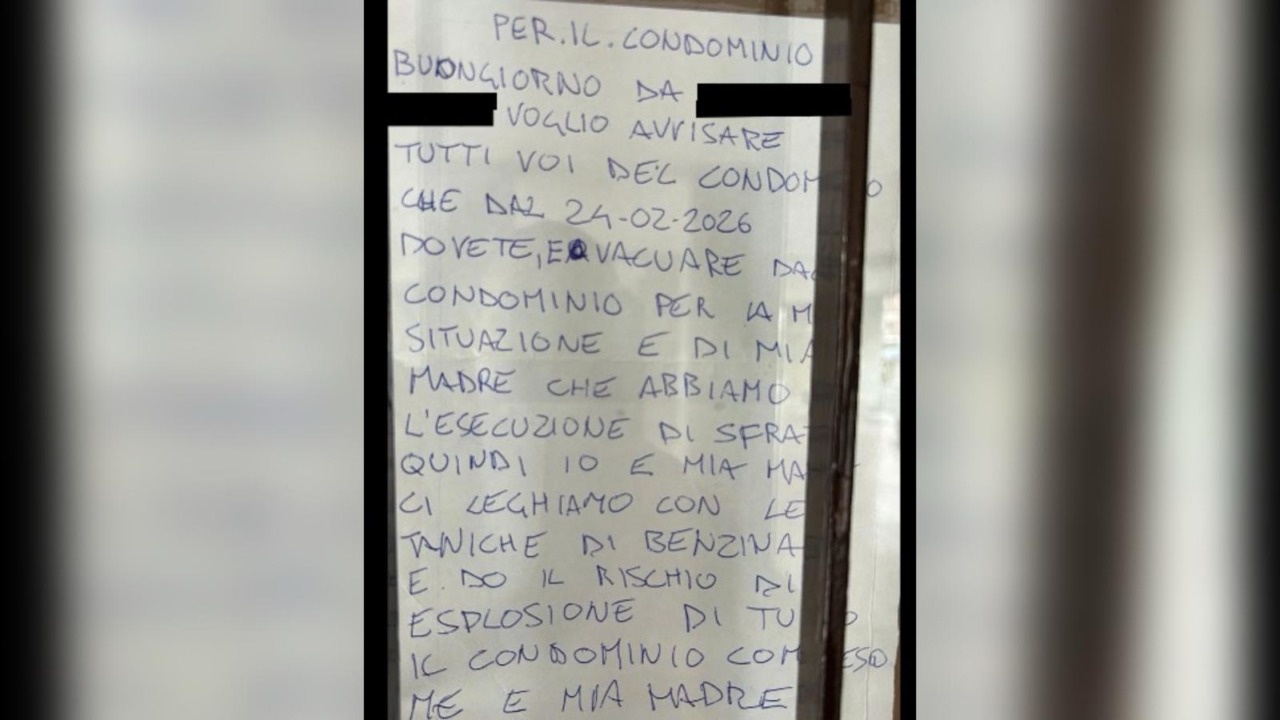 PER.IL.CONDOMINIO
BUONGIORNO DA
VOGLIO AVVISARE
TUTTI VOI DEL CONDOM O
CHE DAL 24-02-2026
DOVETE, EVACUARE DA
CONDOMINIO PER LA M
SITUAZIONE E DI MIA
MADRE CHE ABBIAMO
L'ESECUZIONE DI SFRAT
QUINDI IO E MIA MA
CI LEGHIAMO CON LE
TANICHE DI BENZINA
E DO IL RISCHIO DI
ESPLOSIONE DI TU O
IL CONDOMINIO COM ESO
ME E MIA MADRE